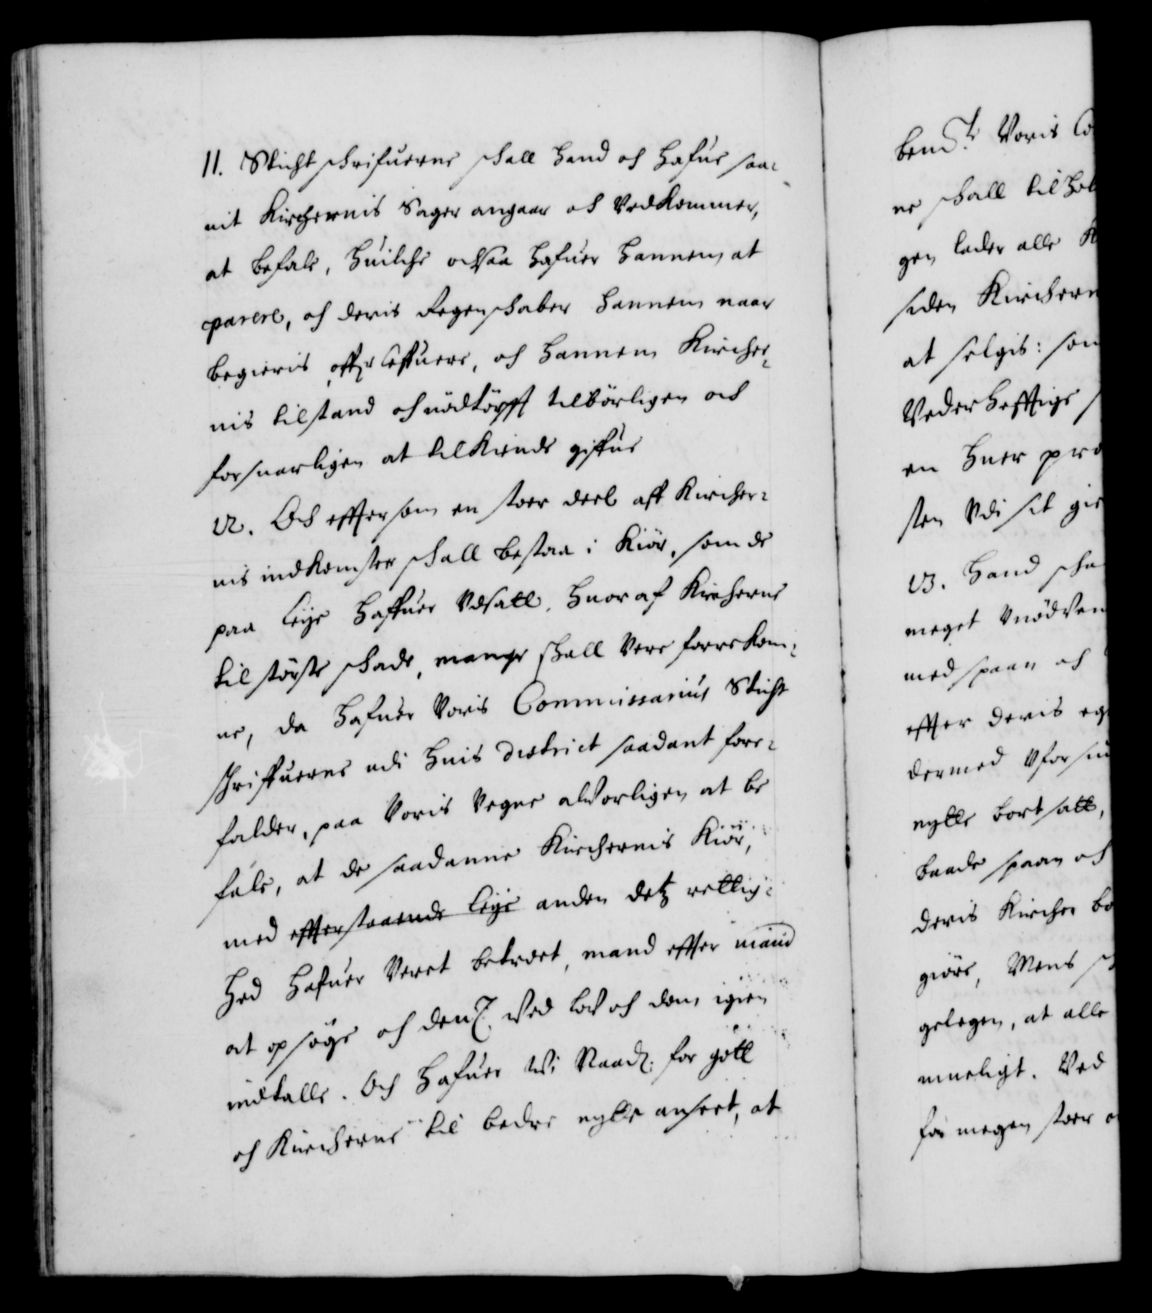 11. Sticht skrifuerne skall hand och hafue saa-
uit Kirchernis Sager angaar och Vedkommer,
at befale, huilche ochsaa hafuer hannem at
parere, och deris Regenskaber hannem naar
begieris offr leffuere, och hannem Kircher-
nis tilstand och nödtörfft tilbörligen och
forsuarligen at tilkiende giffue
12. Och efftersom en stoer deel aff Kircher-
nis indkomster skall bestaa i Kiör, som de
paa leye haffuer Vdsatt, huoraf Kircherne
til störste skade, mange skall Vere forrekom-
ne, da hafuer Voris Commissarius Sticht
skriffuerne udi huis district saadant fore-
falder, paa Voris Vegne alvorligen at be
fale, at de saadanne Kirchernis Kiör,
med efferstaaende leye anden detz rettig-
hed hafuer Veret betroet, mand effter mand
at opsöge och dennem Ved lov och dom igien
indtalle. Och hafuer Wi Naadigst for gott
och Kircherne til bedre nytte anseet, at
bemte Voris Co
ne skall tilhol
gen lader alle K
siden Kirchern
at selgis: som
Vederhefftige s
en huer pro
sten Vdi sit gie
13. Hand ska
meget unödven
med spaan och
effter deris eg
dermed Vforsiu
nytte bortsatt,
baade spaan och
deris Kircher bo
giöre, Mens sk
gelegen, at alle
mueligt. Ved
for megen stoer o